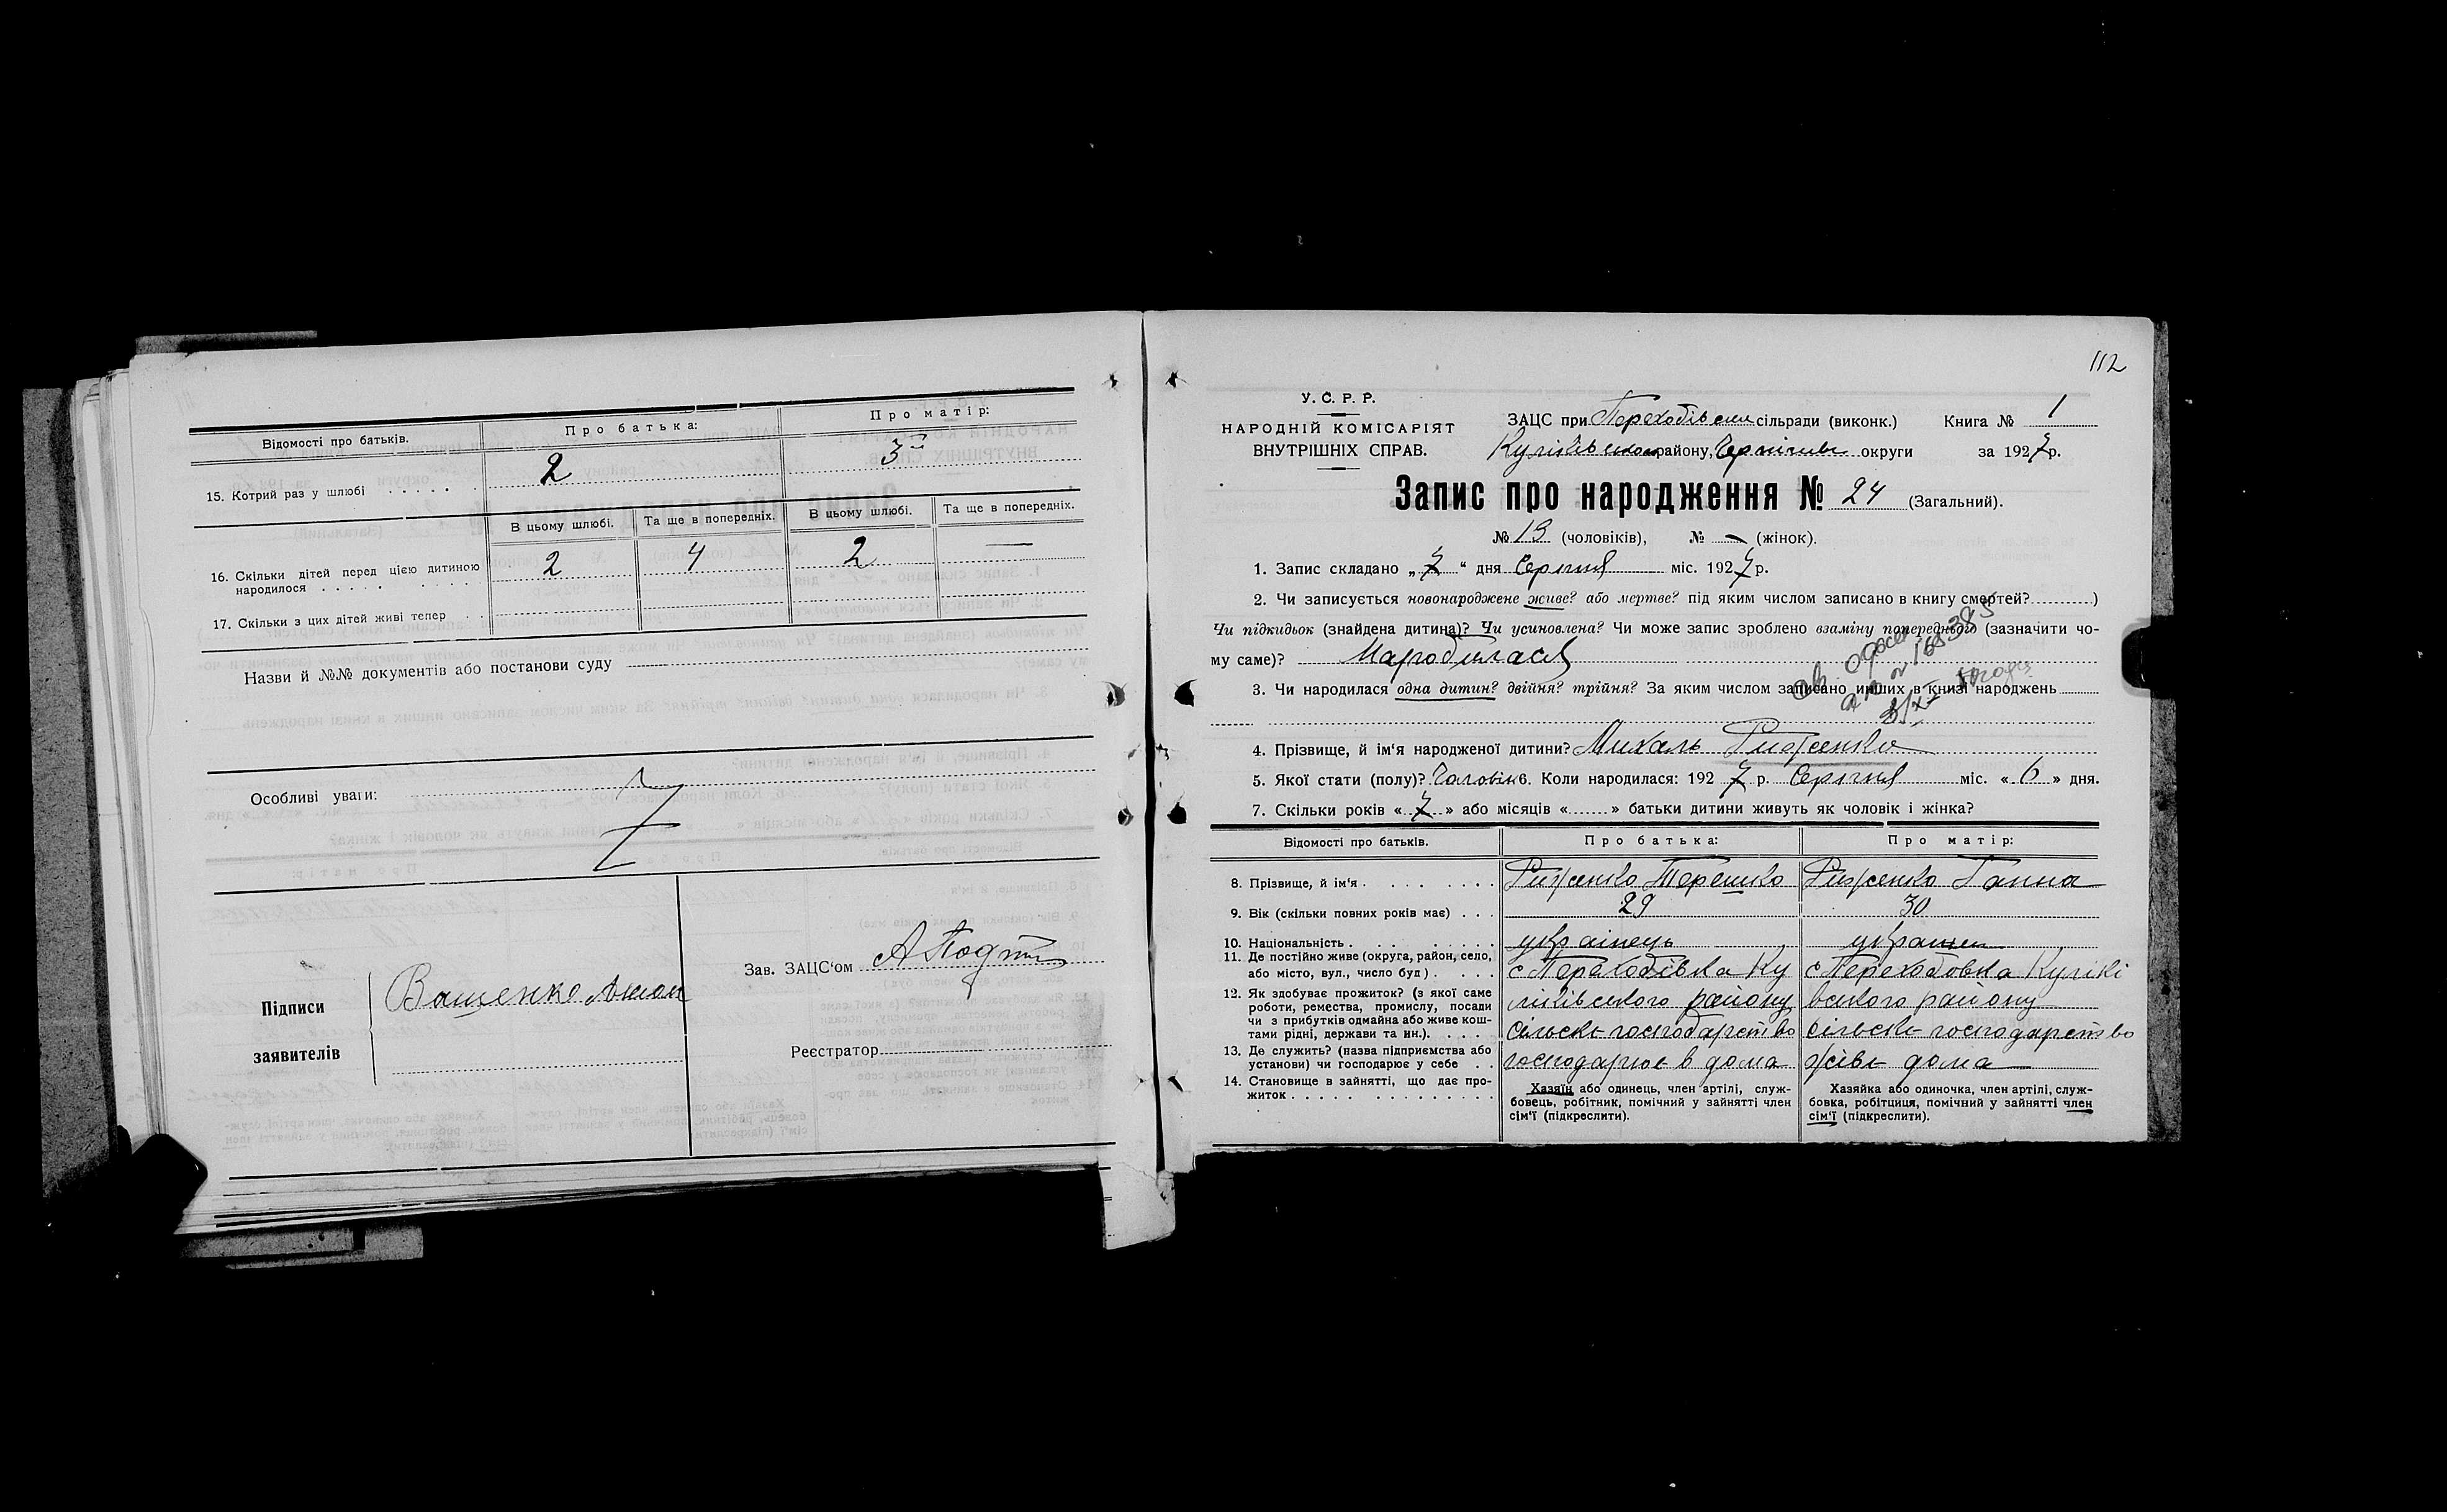 Відомості про батьків.
Про батька:
Про матір:
15. Котрий раз у шлюбі
2
3
В цьому шлюбі.
Та ще в попередніх.
В цьому шлюбі.
Та ще в попередніх.
16. Скільки дітей перед цією дитиною
народилося
2
4
2
—
17. Скільки з цих дітей живі тепер
Назви й №№ документів або постанови суду
Особливі уваги:
Підписи
заявителів
Ващенко
Зав. ЗАЦС‘ом
Реєстратор
112
У. С. Р. Р.
НАРОДНІЙ КОМІСАРІЯТ
ВНУТРІШНІХ СПРАВ.
ЗАЦС при Переходівськ сільради (виконк.)
Книга № 1
Куликівського району, Чернігівс округи
за 1927 р.
Запис про народження № 24 (Загальний).
№ 13 (чоловіків), № — (жінок).
1. Запис складано „7“ дня Серпня міс. 1927 р.
2. Чи записується новонароджене живе? або мертве? під яким числом записано в книгу смертей? )
Чи підкидьок (знайдена дитина)? Чи усиновлена? Чи може запис зроблено взаміну попереднього (зазначити чо-
му саме)? Народилася
3. Чи народилася одна дитин? двійня? трійня? За яким числом записано инших в книзі народжень
4. Прізвище, й ім‘я народженої дитини? Михаль Риженко
5. Якої стати (полу)? Чоловік 6. Коли народилася: 1927 р. Серпня міс. «6» дня.
7. Скільки років «7» або місяців «......» батьки дитини живуть як чоловік і жінка?
Відомості про батьків.
Про батька:
Про матір:
8. Прізвище, й ім‘я
Риженко Терешко
Риженко Ганна
9. Вік (скільки повних років має)
29
30
10. Національність
українець
україн
11. Де постійно живе (округа, район, село,
або місто, вул., число буд)
с Переходівка Ку
ликівського району
с Переходовка Куликі
вського району
12. Як здобуває прожиток? (з якої саме
роботи, ремества, промислу, посади
чи з прибутків одмайна або живе кош-
тами рідні, держави та ин.).
сільске господарство
сільске господарство
13. Де служить? (назва підприємства або
установи) чи господарює у себе
господарює в дома
живе дома
14. Становище в зайнятті, що дає про-
житок
Хазяїн або одинець, член артілі, служ-
бовець, робітник, помічний у зайнятті член
сім‘ї (підкреслити).
Хазяйка або одиночка, член артілі, служ-
бовка, робітниця, помічний у зайнятті член
сім‘ї (підкреслити).